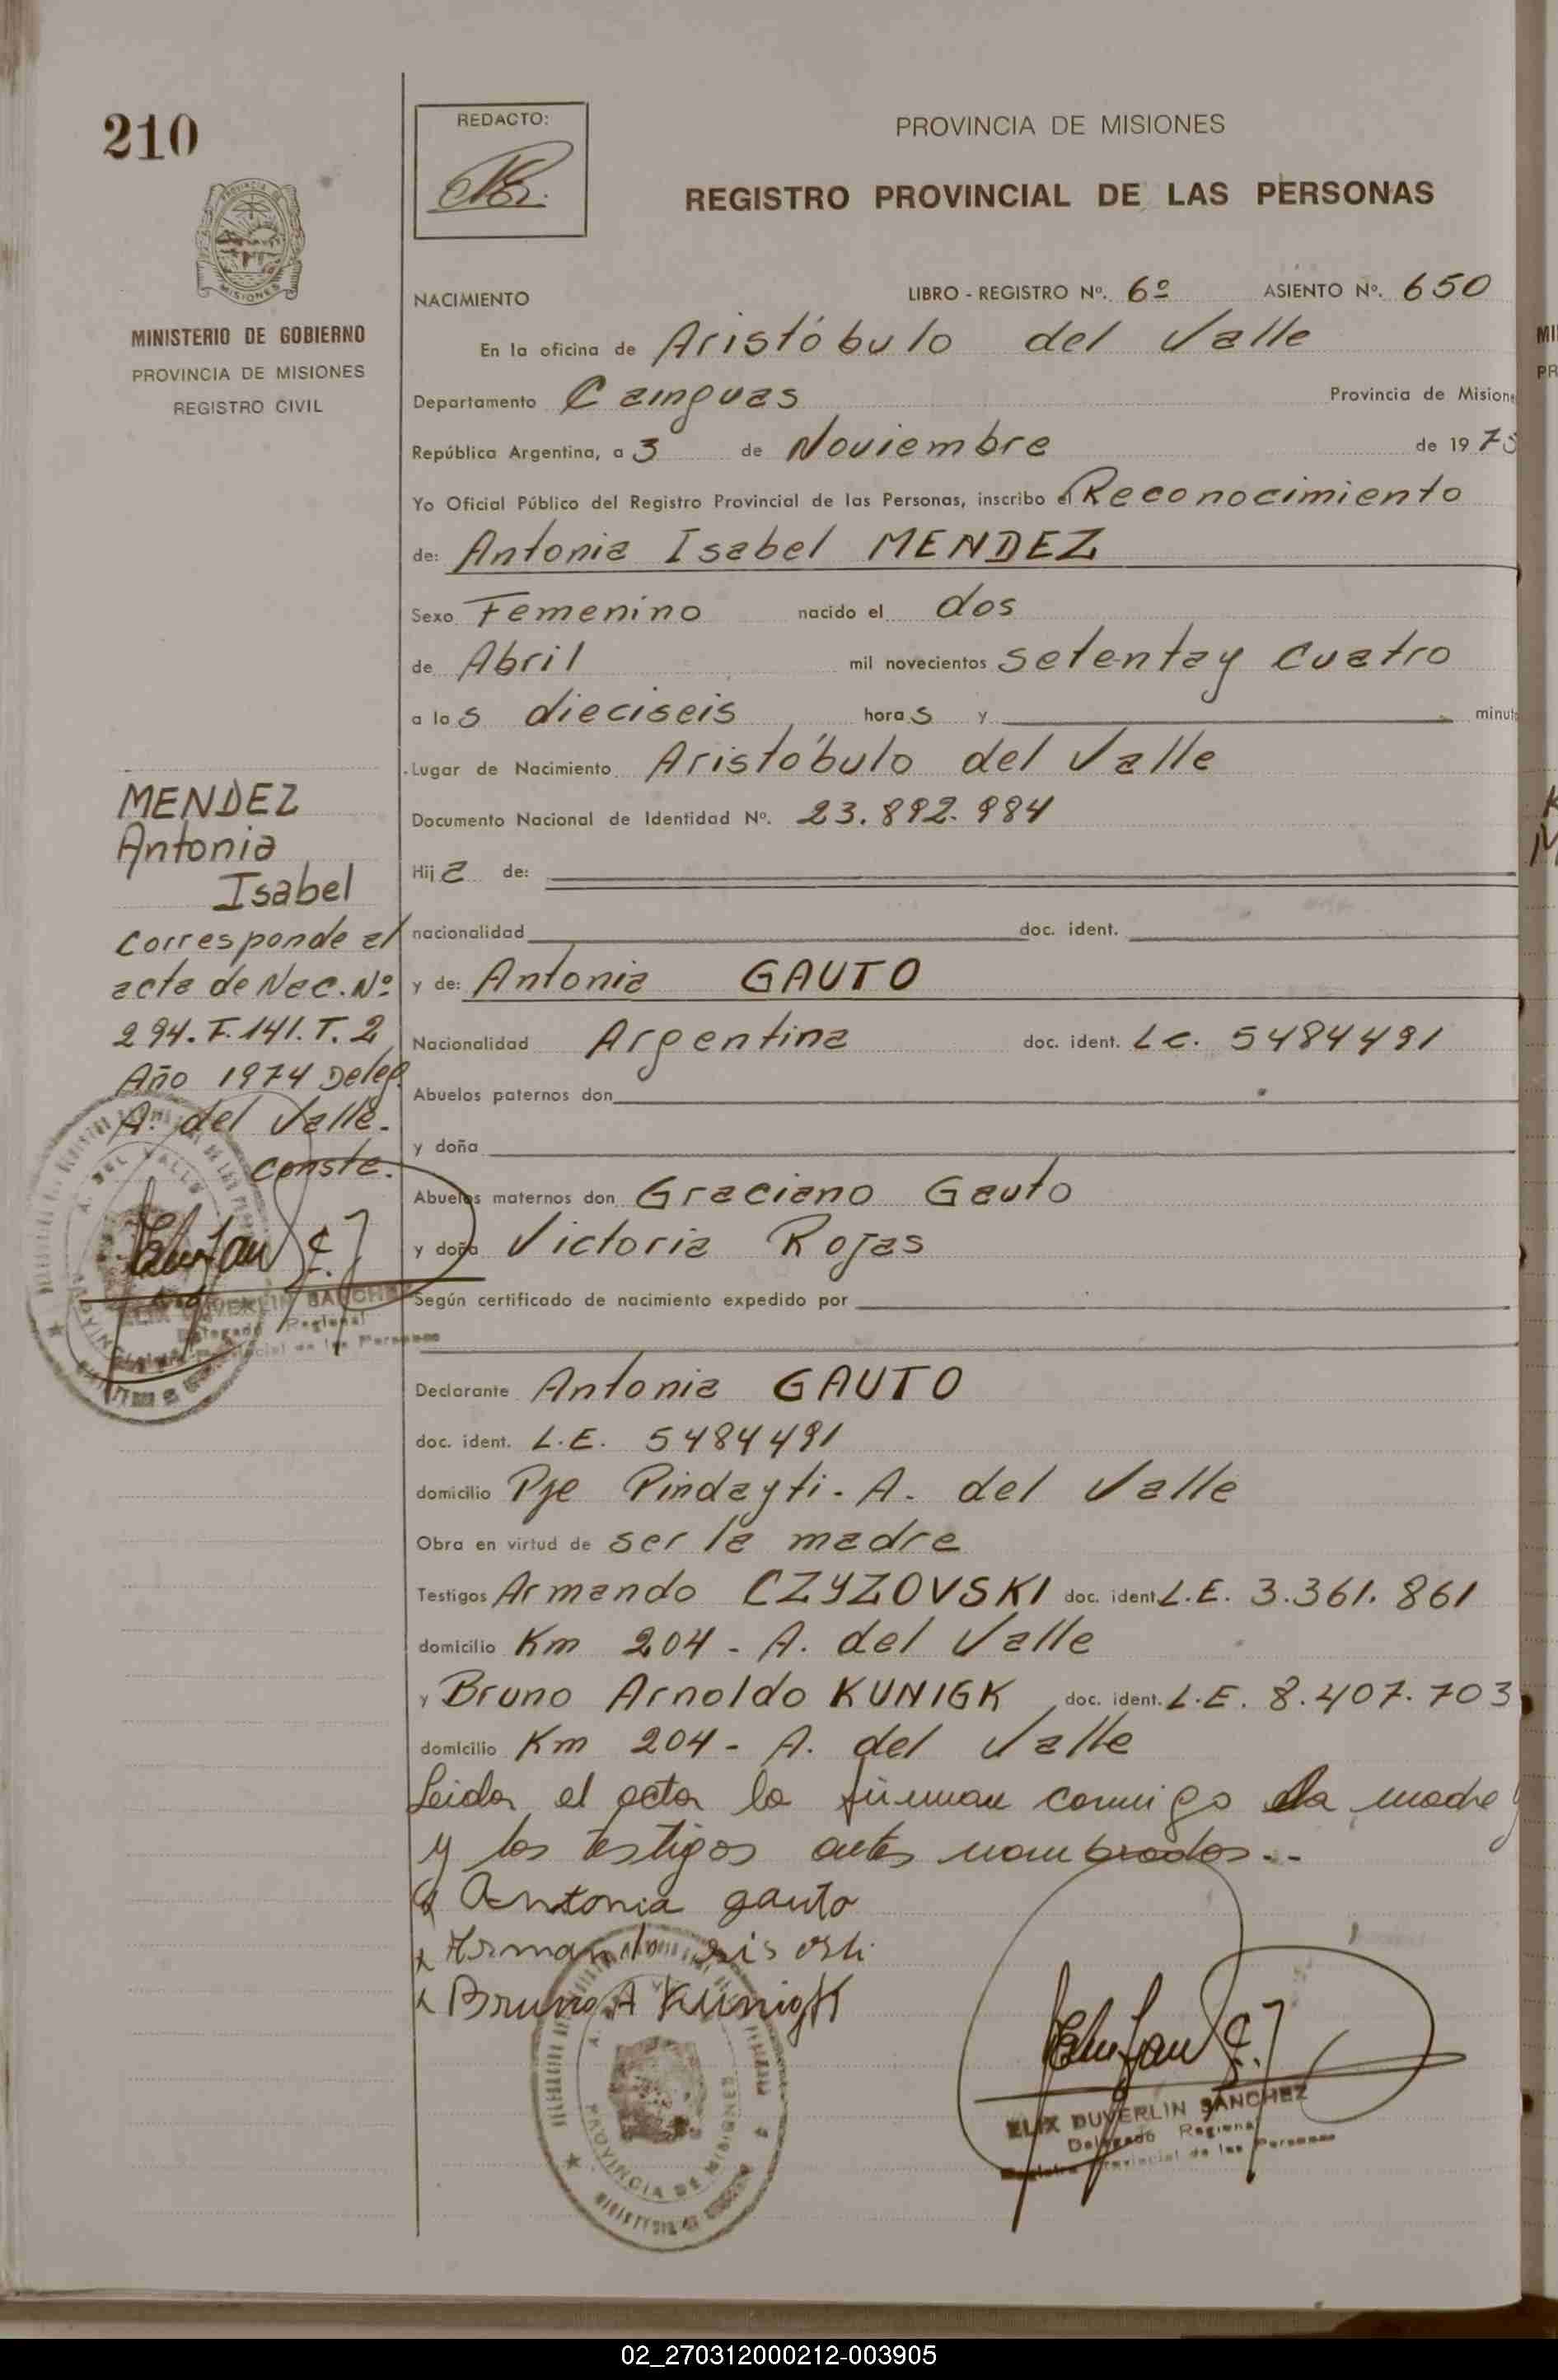 210
REDACTO:
PROVINCIA DE MISIONES
REGISTRO PROVINCIAL DE LAS PERSONAS
MISIONES
MINISTERIO DE GOBIERNO
PROVINCIA DE MISIONES
REGISTRO CIVIL
NACIMIENTO LIBRO - REGISTRO Nº. 6º ASIENTO Nº. 650
En la oficina de Aristóbulo del Valle
Departamento Cainguas Provincia de Misione
República Argentina, a 3 de Noviembre de 1975
Yo Oficial Público del Registro Provincial de las Personas, inscribo el Reconocimiento
de: Antonia Isabel MENDEZ
Sexo Femenino nacido el dos
de Abril mil novecientos setenta y cuatro
a las dieciseis horas y minut
Lugar de Nacimiento Aristóbulo del Valle
Documento Nacional de Identidad Nº. 23.892.984
Hija de:
nacionalidad doc. ident.
y de: Antonia GAUTO
Nacionalidad Argentina doc. ident. LC. 5484491
Abuelos paternos don
y doña
Abuelos maternos don Graciano Gauto
y doña Victoria Rojas
Según certificado de nacimiento expedido por
Declarante Antonia GAUTO
doc. ident. L.E. 5484491
domicilio Pje Pindayti - A. del Valle
Obra en virtud de ser la madre
Testigos Armando CZYZOVSKI doc. ident. L.E. 3.361.861
domicilio Km 204 - A. del Valle
y Bruno Arnoldo KUNIGK doc. ident. L.E. 8.407.703
domicilio Km 204 - A. del Valle
Leida el acta la firman conmigo la madre
y los testigos antes nombrados..
Antonia gauto
Armando
Bruno A Kunigk
MENDEZ
Antonia
Isabel
Corresponde al
acta de Nac. Nº
294. F. 141. T. 2
Año 1974 Deleg.
A. del Valle.
Conste.
ELIX DUVERLIN SANCHEZ
Delegado Regional
Registro Provincial de las Personas
PROVINCIA DE MISIONES
ELIX DUVERLIN SANCHEZ
Delegado Regional
Registro Provincial de las Personas
02_270312000212-003905